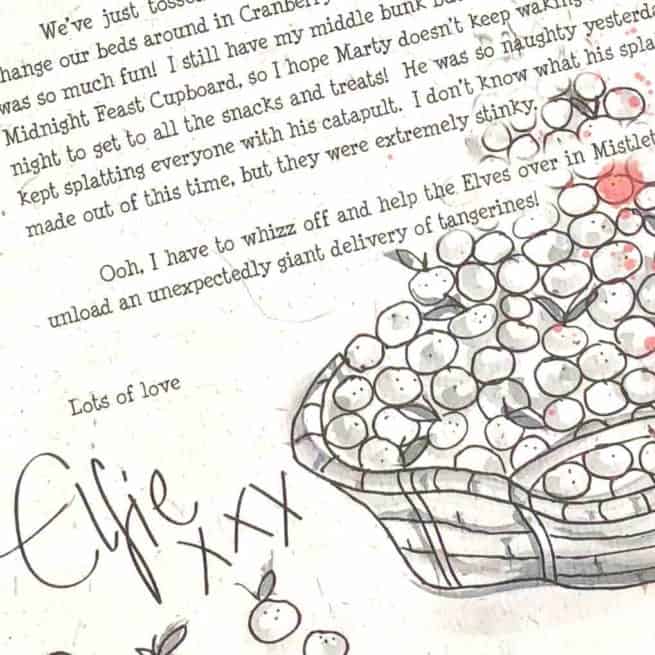 We've just tossed
hange our beds around in Cranberry
was so much fun! I still have my middle bunk bu
Midnight Feast Cupboard, so I hope Marty doesn't keep waking
night to get to all the snacks and treats! He was so naughty yesterda
kept splatting everyone with his catapult. I don't know what his spla
made out of this time, but they were extremely stinky.
Ooh, I have to whizz off and help the Elves over in Mistlet
unload an unexpectedly giant delivery of tangerines!
Lots of love
Elfie
xxx